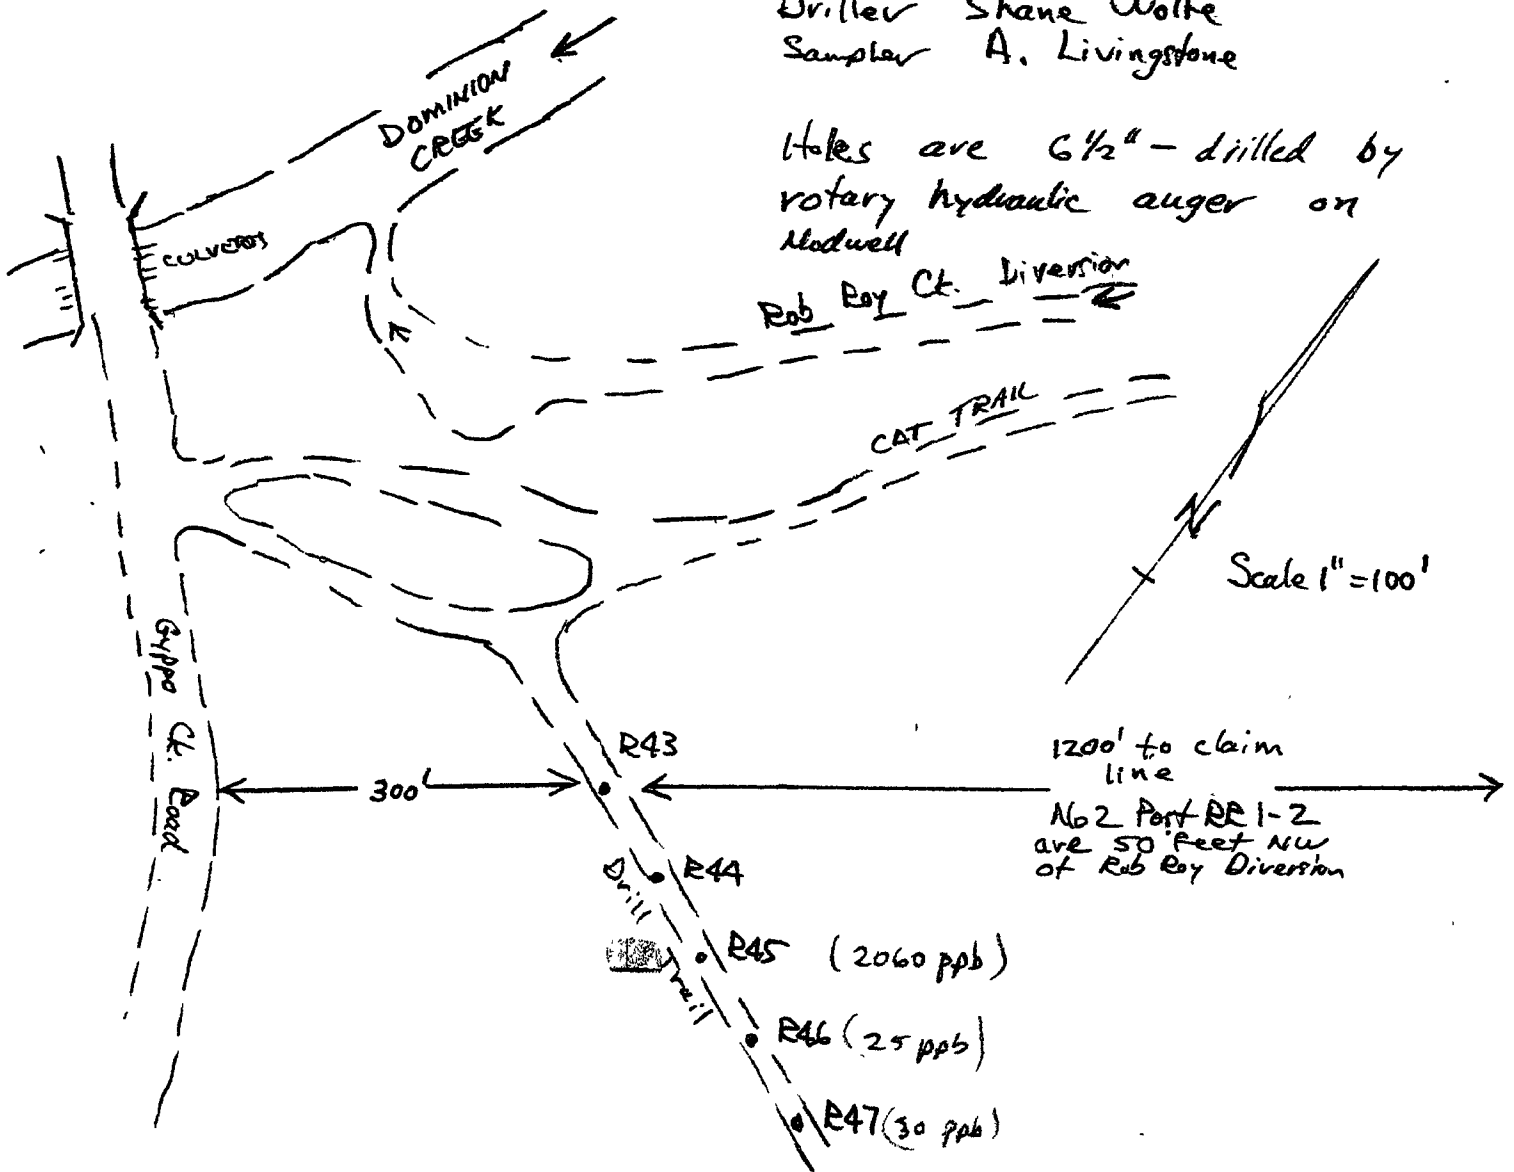 Driller Shane Wolfe
Sampler A. Livingstone
Holes are 6½" - drilled by
rotary hydraulic auger on
Nodwell
DOMINION
CREEK
CULVERTS
Rob Roy Ck. Diversion
CAT TRAIL
N
Scale 1" = 100'
Gyppo Ck. Road
R43
300'
1200' to claim
line
No 2 Post RR 1-2
are 50 feet NW
of Rob Roy Diversion
R44
Drill
Trail
R45 (2060 ppb)
R46 (25 ppb)
R47 (30 ppb)